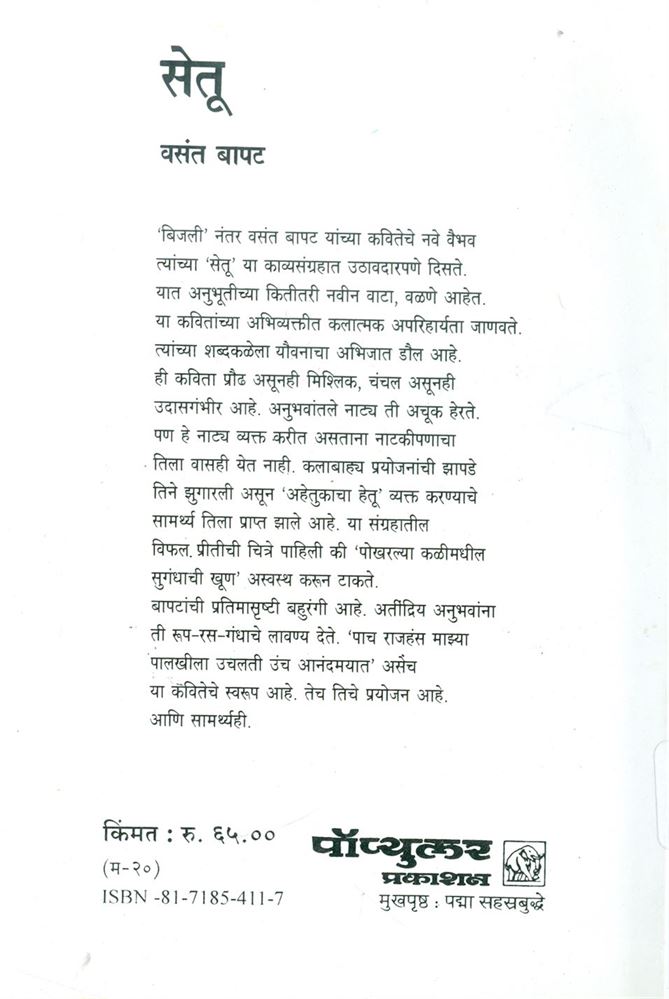 सेतू
वसंत बापट
'बिजली' नंतर वसंत बापट यांच्या कवितेचे नवे वैभव
त्यांच्या 'सेतू' या काव्यसंग्रहात उठावदारपणे दिसते.
यात अनुभूतीच्या कितीतरी नवीन वाटा, वळणे आहेत.
या कवितांच्या अभिव्यक्तीत कलात्मक अपरिहार्यता जाणवते.
त्यांच्या शब्दकळेला यौवनाचा अभिजात डौल आहे.
ही कविता प्रौढ असूनही मिश्लिक, चंचल असूनही
उदासगंभीर आहे. अनुभवांतले नाट्य ती अचूक हेरते.
पण हे नाट्य व्यक्त करीत असताना नाटकीपणाचा
तिला वासही येत नाही. कलाबाह्य प्रयोजनांची झापडे
तिने झुगारली असून 'अहेतुकाचा हेतू' व्यक्त करण्याचे
सामर्थ्य तिला प्राप्त झाले आहे. या संग्रहातील
विफल प्रीतीची चित्रे पाहिली की 'पोखरल्या कळीमधील
सुगंधाची खूण' अस्वस्थ करून टाकते.
बापटांची प्रतिमासृष्टी बहुरंगी आहे. अतींद्रिय अनुभवांना
ती रूप-रस-गंधाचे लावण्य देते. 'पाच राजहंस माझ्या
पालखीला उचलती उंच आनंदमयात' असेच
या कवितेचे स्वरूप आहे. तेच तिचे प्रयोजन आहे.
आणि सामर्थ्यही.
किंमत : रु. ६५.००
(म-२०)
ISBN -81-7185-411-7
पॉप्युलर
प्रकाशन
मुखपृष्ठ : पद्मा सहस्रबुद्धे